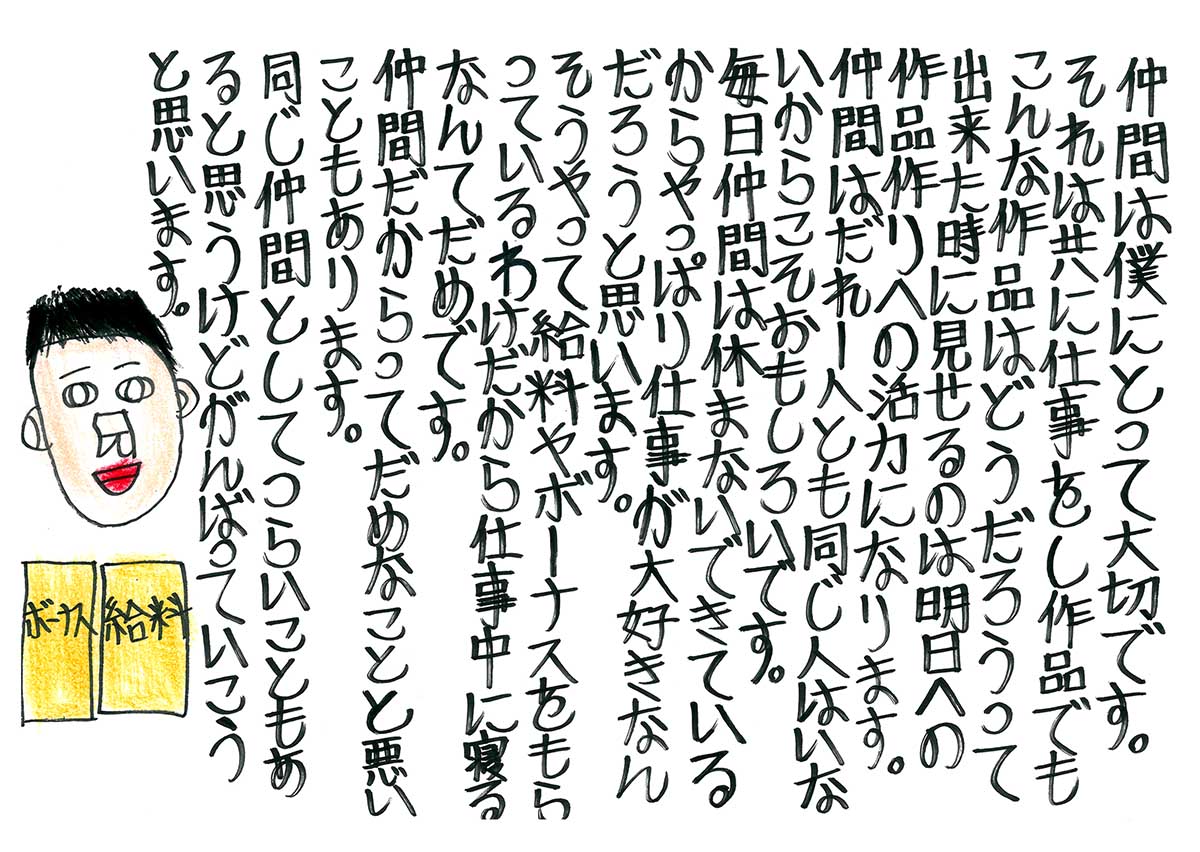 仲間は僕にとって大切です。
それは共に仕事をし作品でも
こんな作品はどうだろうって
出来た時に見せるのは明日への
作品作りへの活力になります。
仲間はだれ一人とも同じ人はいな
いからこそおもしろいです。
毎日仲間は休まないできている
からやっぱり仕事が大好きなん
だろうと思います。
そうやって給料やボーナスをもら
っているわけだから仕事中に寝る
なんてだめです。
仲間だからってだめなことと悪い
こともあります。
同じ仲間としてつらいこともあ
ると思うけどがんばっていこう
と思います。
給料
ボーナス